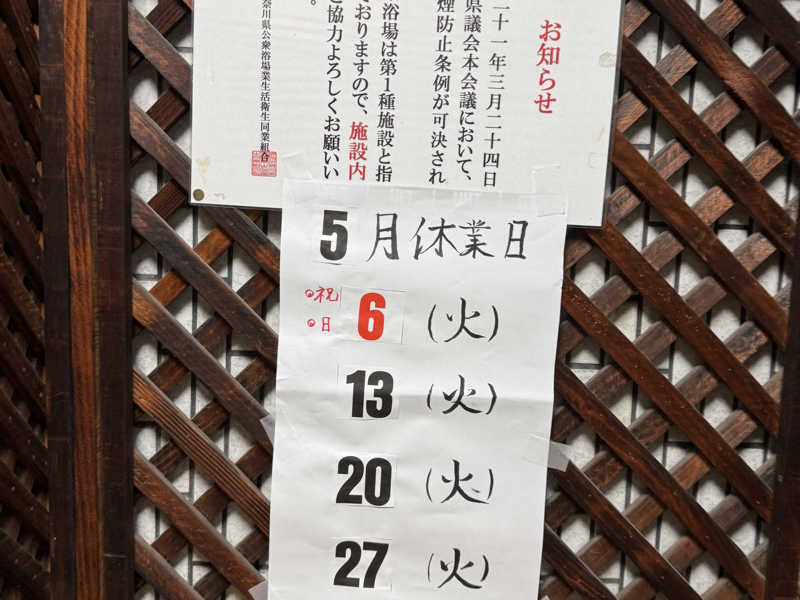 お知らせ
二十一年三月二十四日
県議会本会議において、
煙防止条例が可決され
浴場は第1種施設と指
ておりますので、施設内
ご協力よろしくお願いい
。
奈川県公衆浴場業生活衛生同業組合
5月休業日
祝日 6 (火)
13 (火)
20 (火)
27 (火)